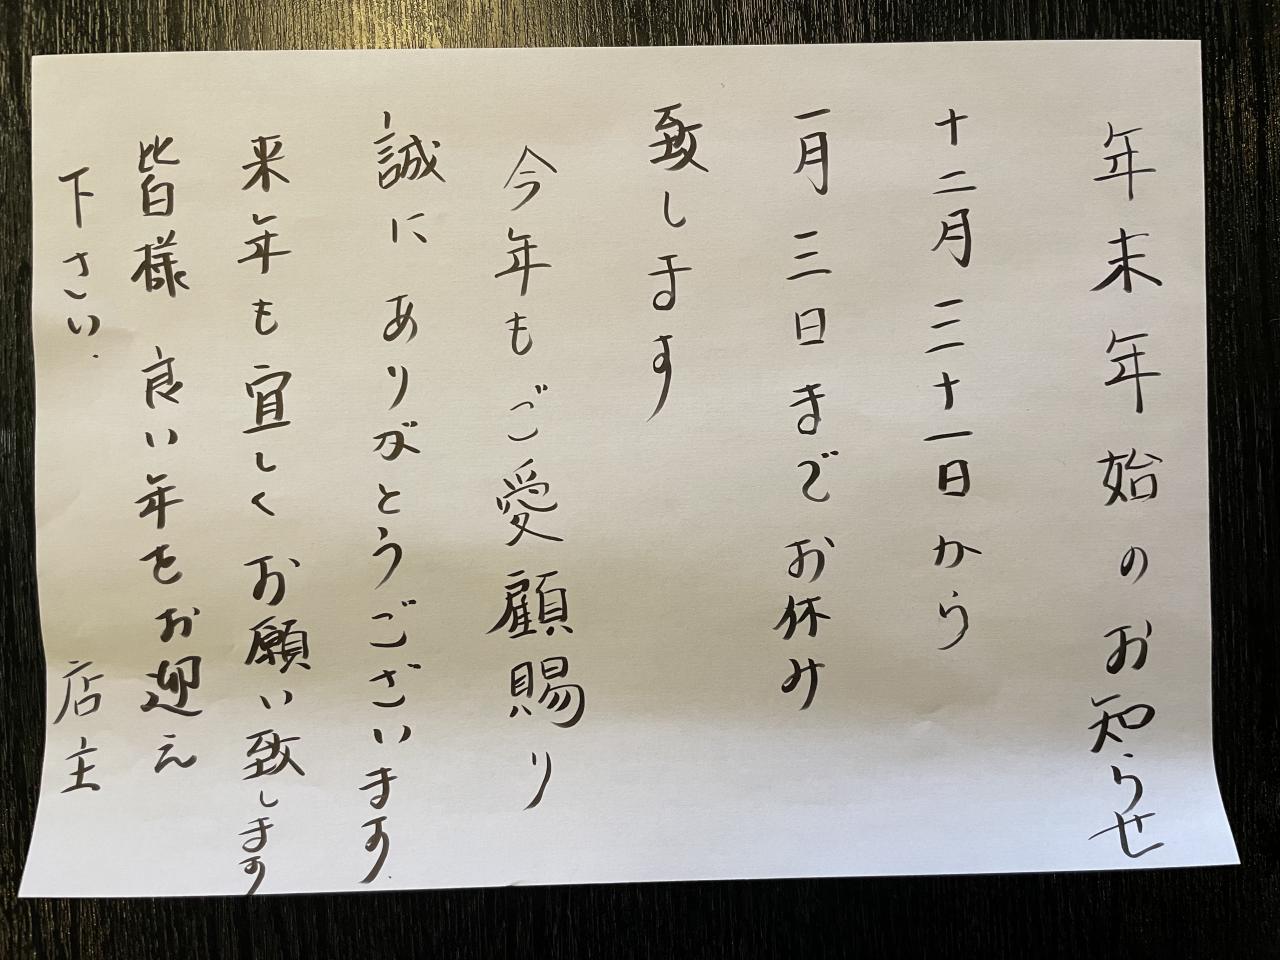 年末年始のお知らせ
十二月三十一日から
一月三日までお休み
致します
今年もご愛顧賜り
誠にありがとうございます
来年も宜しくお願い致します
皆様良い年をお迎え
下さい.
店主